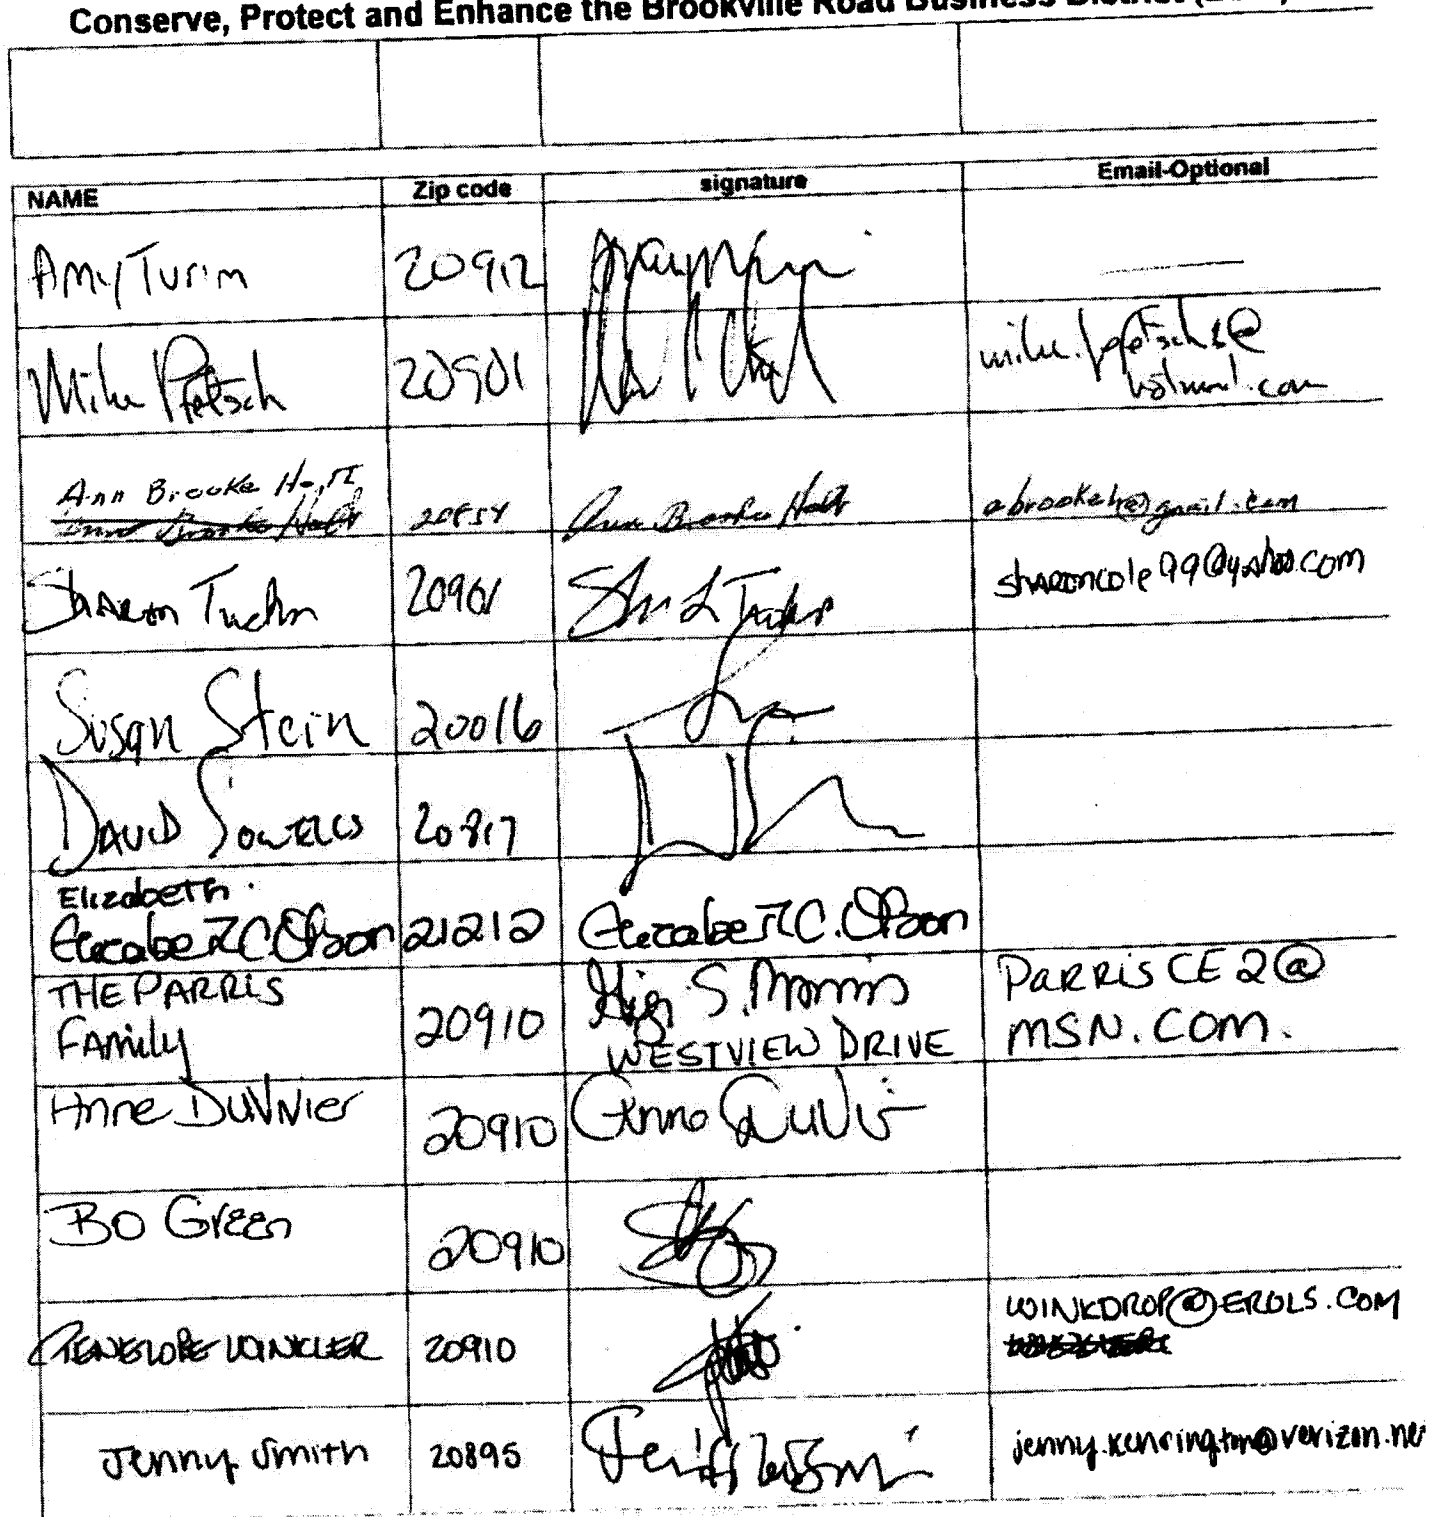 Conserve, Protect and Enhance the Brookville Road Business District
NAME Zip code signature Email-Optional
Amy Turim 20912
Mike Pfetsch 20901 mike.pfetsch@
hotmail.com
Ann Brooke Holt
20854 Ann Brooke Holt abrookeh@gmail.com
Sharon 20901 sharoncole99@yahoo.com
Susan Stein 20016
David Sowells 20817
Elizabeth
Elizabeth C. Olson 21212 Elizabeth C. Olson
THE PARRIS
Family 20910 WESTVIEW DRIVE
PARRISCE2@
MSN.COM.
Anne DuVivier 20910
Bo Green 20910
PENELOPE WINKLER 20910 WINKDROP@EROLS.COM
Jenny Smith 20895 jenny.kensington@verizon.net